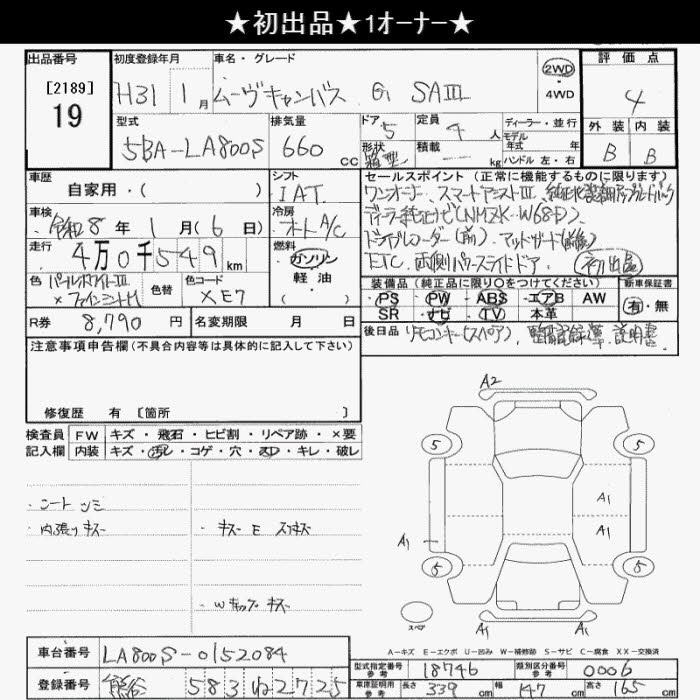 ★初出品★1オーナー★
出品番号 初度登録年月 車名・グレード 評価点
[2189] 19
H31 1月 ムーヴキャンバス G SAⅢ 2WD・4WD 4
型式 排気量 ドア 定員 ディーラー・並行 外装 内装
5BA-LA800S 660cc 5 4人 モデル年式 年 B B
形状 箱型 積載 kg ハンドル 左・右
車歴 自家用・( ) シフト IAT
セールスポイント(正常に機能するものに限ります)
ワンオーナー、スマートアシストⅢ、純正
ディーラー純正ナビ(NMZK-W68D)
ドライブレコーダー(前)、マッドガード
ETC、両側パワースライドドア、初出品
車検 令和8年1月(6日) 冷房 オートA/C
走行 4万0千549km 燃料 ガソリン・軽油( )
色 パールホワイトⅢ×ファインミントM 色替 色コード XE7
装備品(純正品に限り○をつけてください) 新車保証書
・PS・PW・ABS・エアB AW 有・無
・SR・ナビ・TV・本革
R券 8,790円 名変期限 月 日
後日品 リモコンキー(スペア)、整備記録簿、説明書
注意事項申告欄(不具合内容等は具体的に記入して下さい)
修復歴 有 [箇所 ]
検査員 FW キズ・飛石・ヒビ割・リペア跡・×要
記入欄 内装 キズ・汚レ・コゲ・穴・スレ・キレ・破レ
・シートシミ
・内張りキズ ・キズ E スリキズ
・Wキップ キズ
A2
5 5
A1
A1 A1
5 5
スペア A1 A1
A=キズ E=エクボ U=凹み W=補修跡 S=サビ C=腐食 XX=交換済
車台番号 LA800S-0152084
型式指定番号 参考 18746 類別区分番号 参考 0006
登録番号 熊谷 583 ね 2725
車庫証明用 参考 長さ 339cm 幅 147cm 高さ 165cm